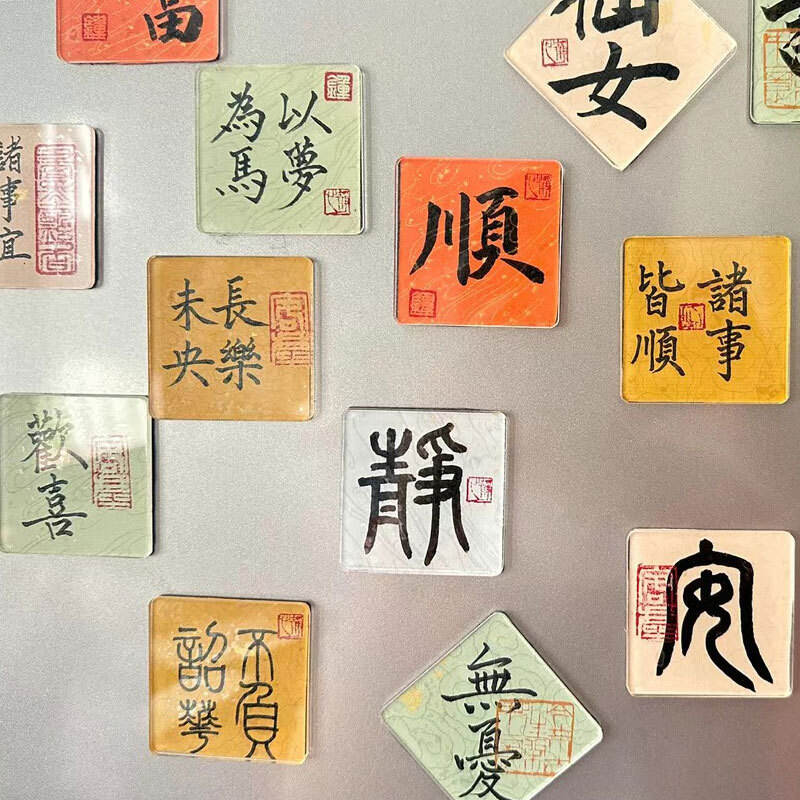 仙女
以夢
為馬
諸事宜
順
諸事
皆順
長樂
未央
歡喜
靜
安
不負
韶華
無憂